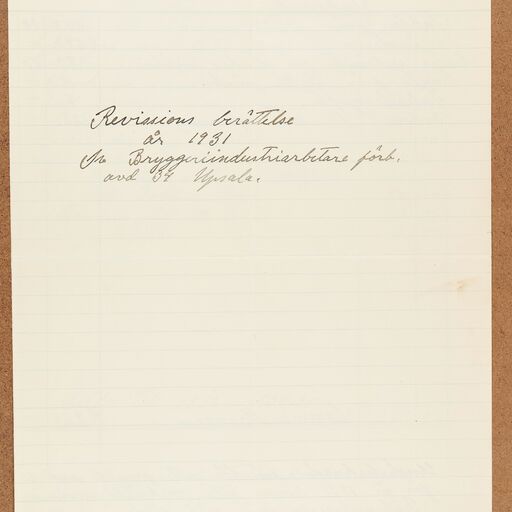 Revissions berättelse
år 1931
för Bryggeriindustriarbetare förb.
avd 34 Upsala.